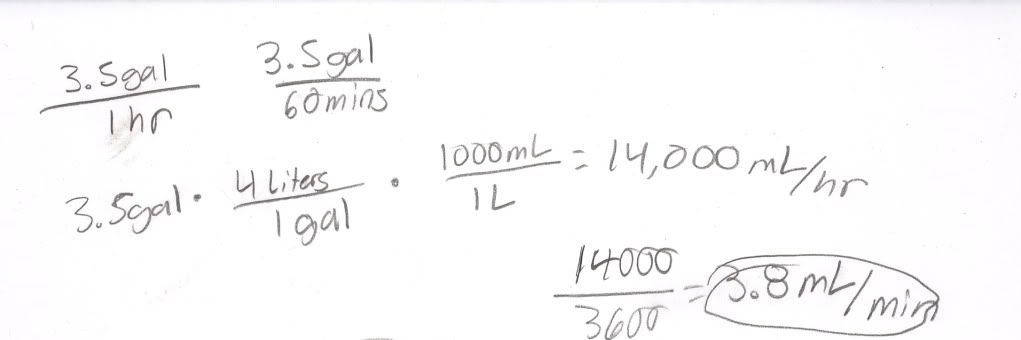 3.5gal/1hr 3.5gal/60mins
3.5gal · 4 Liters/1gal · 1000mL/1L = 14,000 mL/hr
14000/3600 = 3.8 mL/min